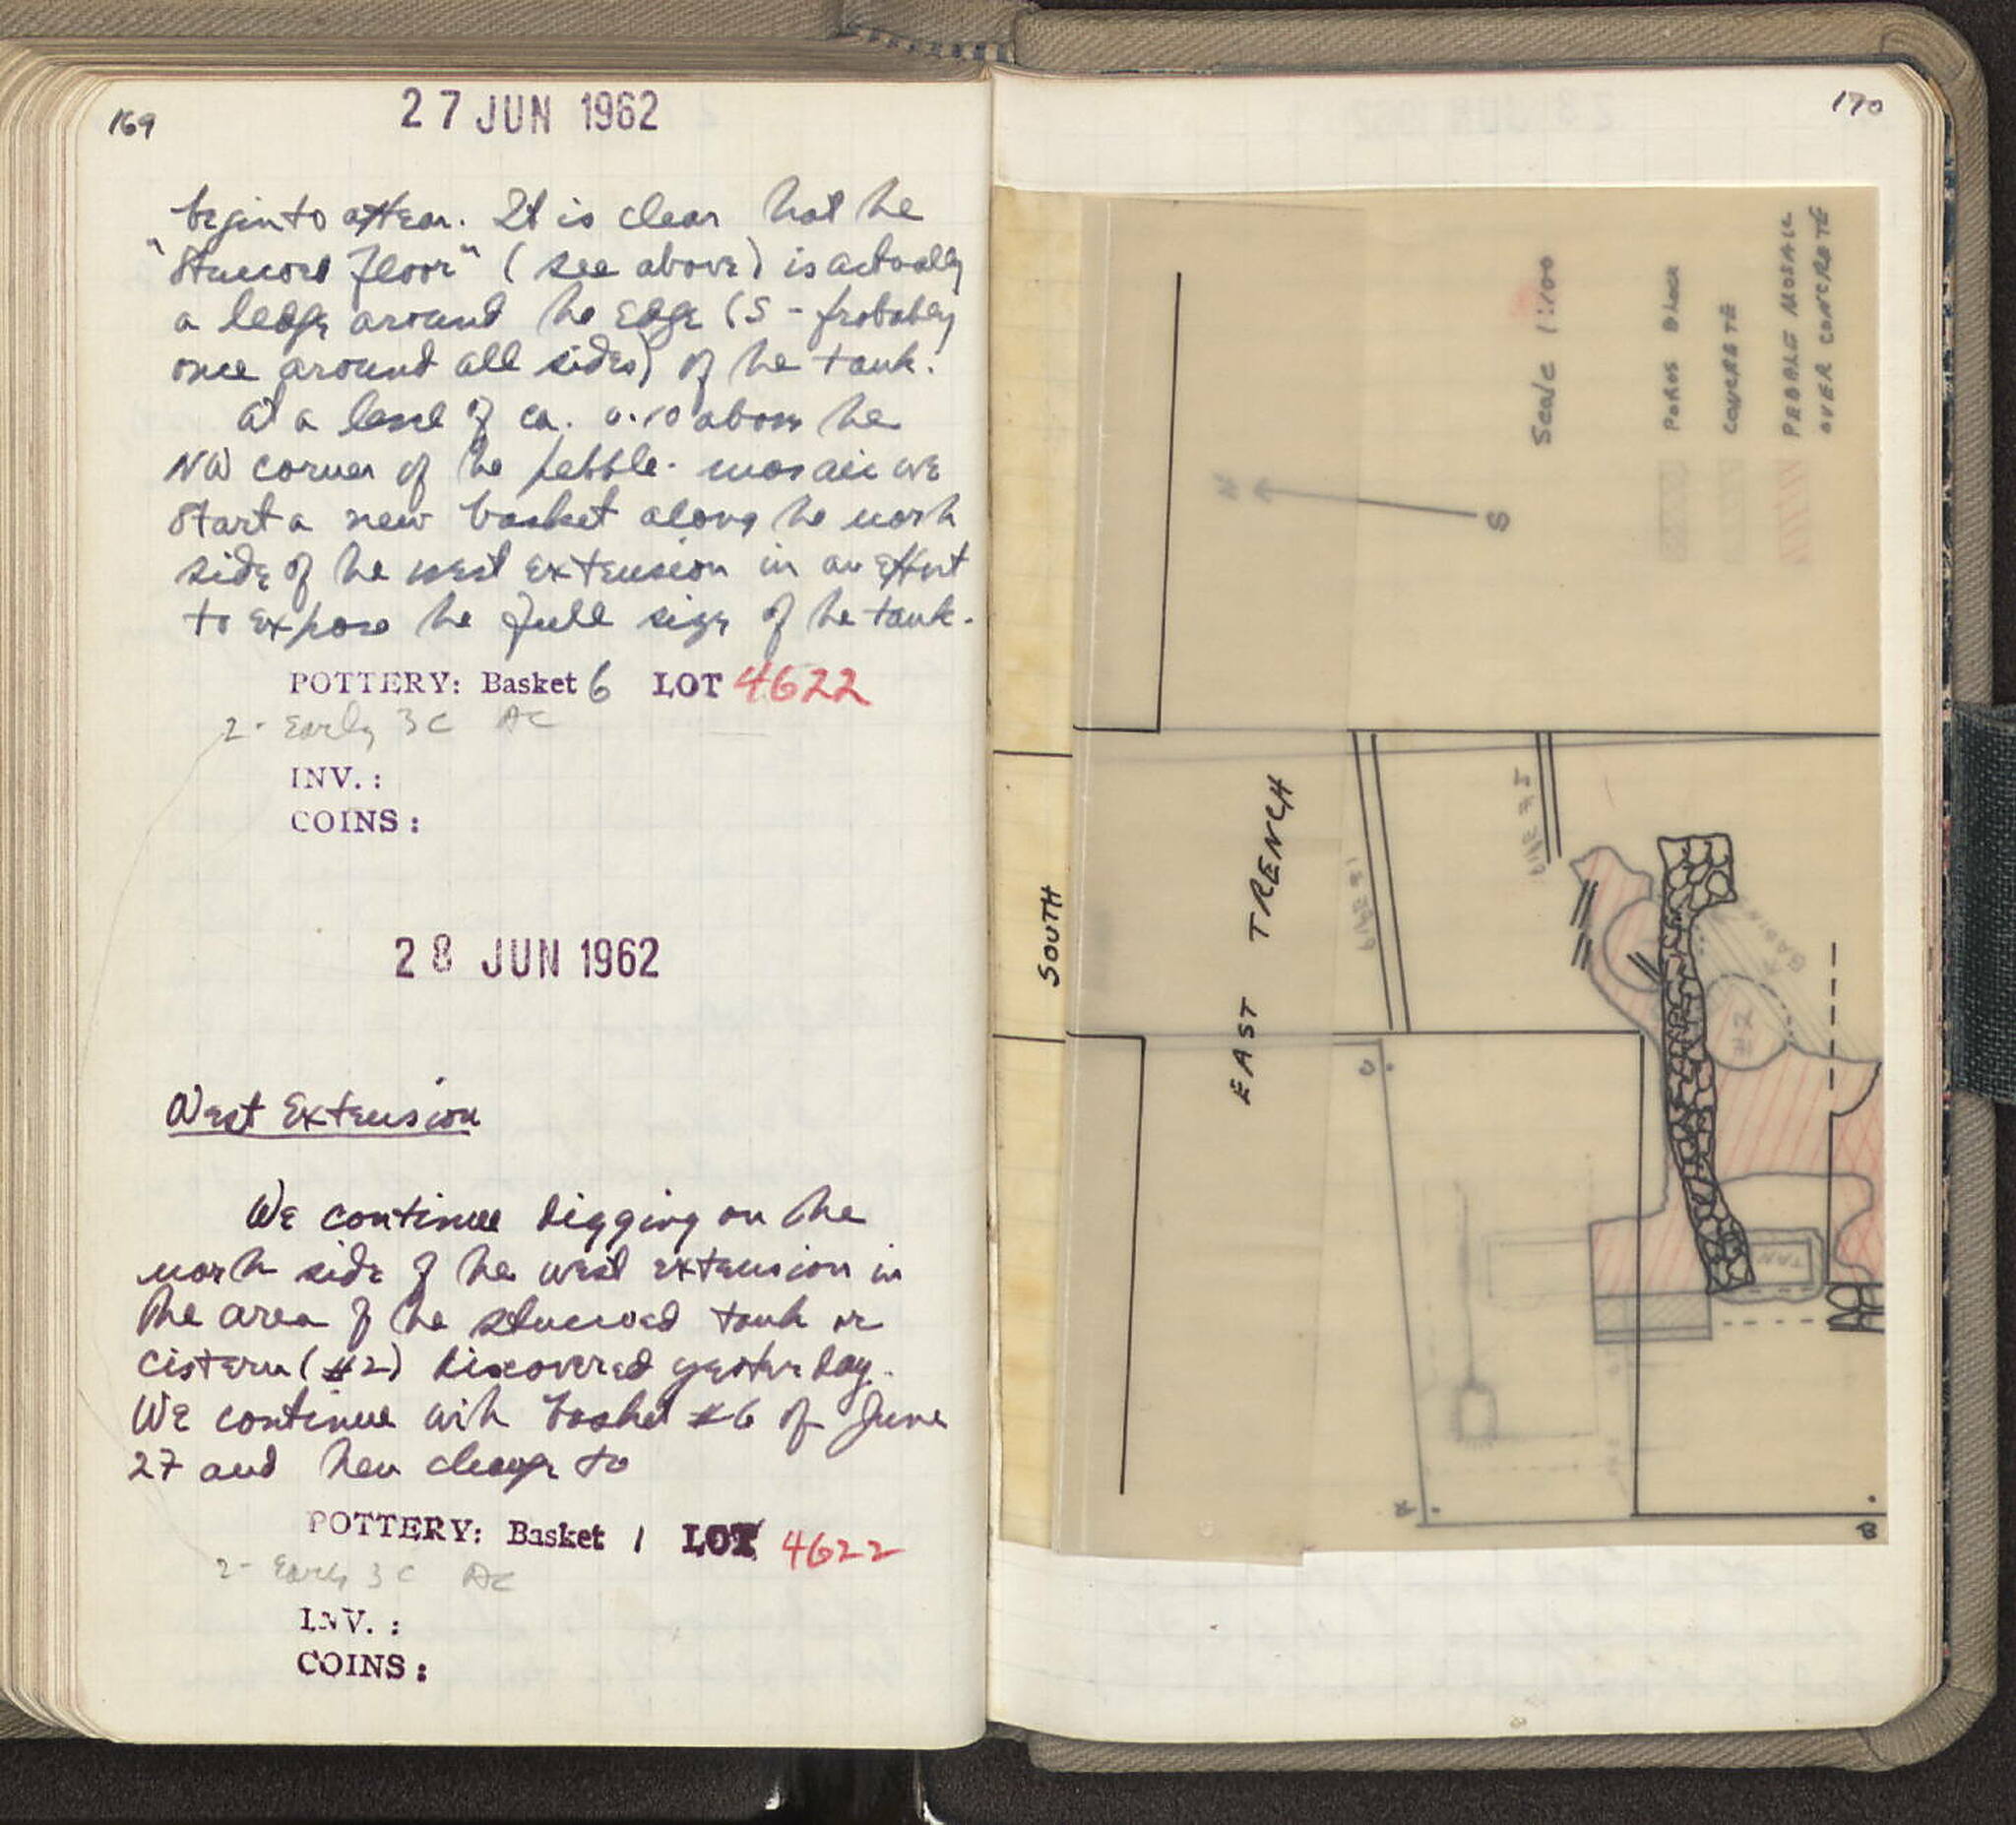 169
27 JUN 1962
begin to appear. It is clear that the
"Stuccoed Floor" (see above) is actually
a ledge around the edge (S - probably
once around all sides) of the tank.
At a level of ca. 0.10 above the
NW corner of the pebble-mosaic we
start a new basket along the north
side of the west extension in an effort
to expose the full size of the tank.
POTTERY: Basket 6 LOT 4622
2- Early 3C AC
INV. :
COINS :
28 JUN 1962
West Extension
We continue digging on the
north side of the west extension in
the area of the stuccoed tank or
cistern (#2) discovered yesterday.
We continue with basket #6 of June
27 and then change to
POTTERY: Basket 1 LOT 4622
2- Early 3C AC
INV. :
COINS :
170
Scale 1:100
POROS Block
CONCRETE
PEBBLE MOSAIC
OVER CONCRETE
N
S
SOUTH
EAST TRENCH
PIPE #1
PIPE #2
BASIN
#2
TAN
B